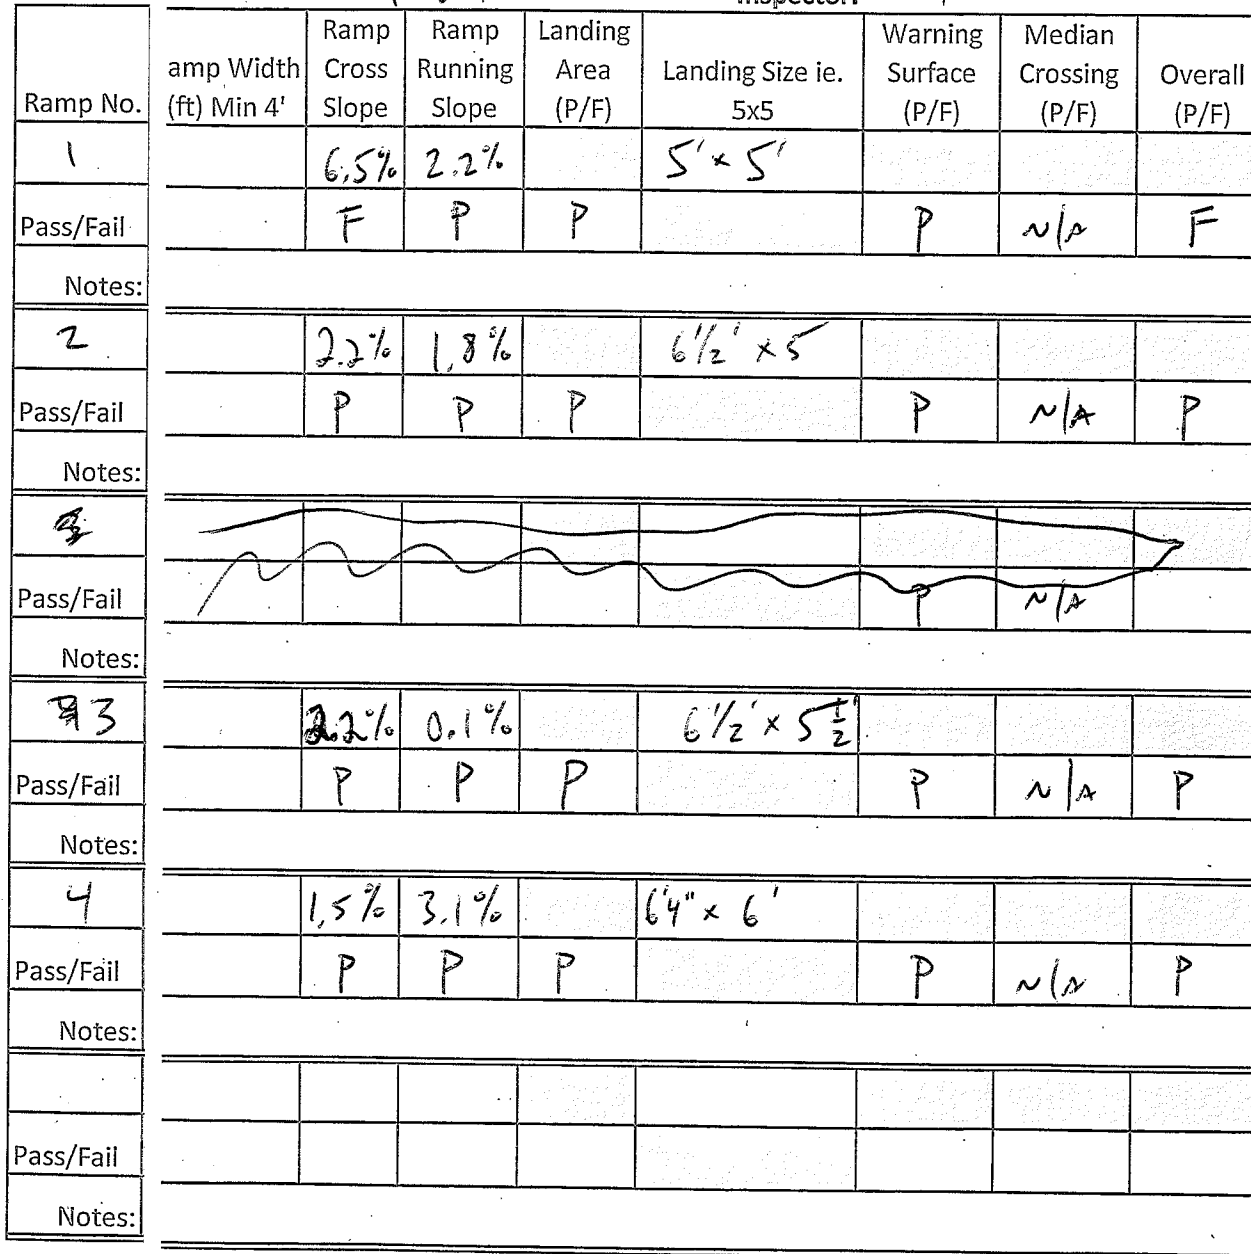 Inspector:
Ramp No. amp Width (ft) Min 4' Ramp Cross Slope Ramp Running Slope Landing Area (P/F) Landing Size ie. 5x5 Warning Surface (P/F) Median Crossing (P/F) Overall (P/F)
1 6.5% 2.2% 5' x 5'
Pass/Fail F P P P N/A F
Notes:
2 2.2% 1.8% 6 1/2' x 5'
Pass/Fail P P P P N/A P
Notes:
Pass/Fail P N/A
Notes:
3 2.2% 0.1% 6 1/2' x 5 1/2'
Pass/Fail P P P P N/A P
Notes:
4 1.5% 3.1% 6'4" x 6'
Pass/Fail P P P P N/A P
Notes:
Pass/Fail
Notes: